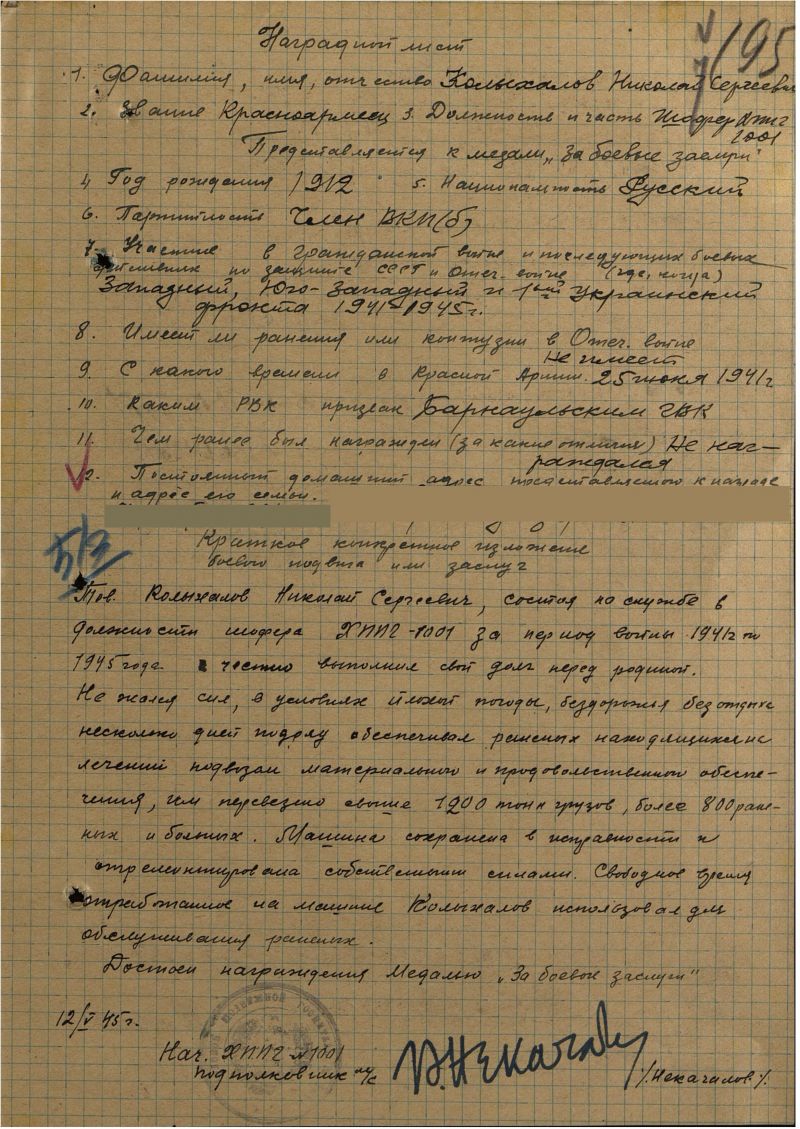 Наградной лист
195
1. Фамилия, имя, отчество Колыхалов Николай Сергеевич
2. Звание Красноармеец 3. Должность и часть Шофер
1001
Представляется к медали „За боевые заслуги"
4 Год рождения 1912 5. Национальность Русский
6. Партийность Член ВКП(б)
7. Участие в гражданской войне и последующих боевых
действиях по защите СССР и Отеч. войне (где, когда)
Западный, Юго-Западный и 1ый Украинский
фронта 1941-1945г.
8. Имеет ли ранения или контузии в Отеч. войне
Не имеет
9. С какого времени в Красной Армии. 25 июня 1941г
10. Каким РВК призван Барнаульским ГВК
11. Чем ранее был награжден (за какие отличия) Не наг-
раждался
12. Постоянный домашний адрес представляемого к награде
и адрес его семьи.
Краткое конкретное изложение
боевого подвига или заслуг
Тов. Колыхалов Николай Сергеевич, состоя на службе в
должности шофера ХППГ-1001 за период войны 1941г по
1945 года честно выполнил свой долг перед родиной.
Не жалея сил, в условиях плохой погоды, бездорожья без отдыха
несколько дней подряд обеспечивал раненых находящихся на
лечении подвозом материального и продовольственного обеспе-
чения, им перевезено свыше 1200 тонн грузов, более 800 ране-
ных и больных. Машина сохранена в исправности и
отремонтирована собственными силами. Свободное время
отработанное на машине Колыхалов использовал для
обслуживания раненых.
Достоин награждения Медалью „За боевые заслуги"
12/V 45 г.
Нач. ХППГ №1001
подполковник м/с
В. Некачалов
/.Некачалов./.